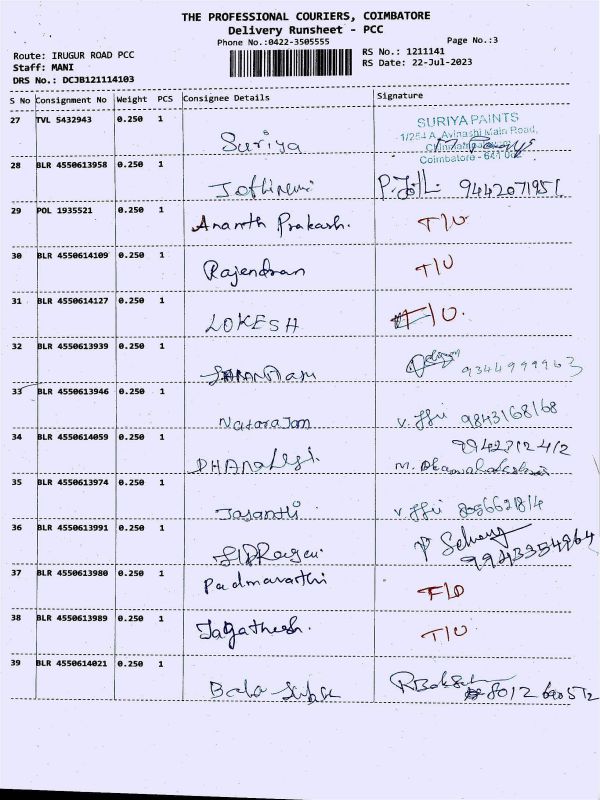 THE PROFESSIONAL COURIERS, COIMBATORE
Delivery Runsheet - PCC
Phone No.:0422-3505555 Page No.:3
Route: IRUGUR ROAD PCC RS No.: 1211141
Staff: MANI RS Date: 22-Jul-2023
DRS No.: DCJB121114103
S No Consignment No Weight PCS Consignee Details Signature
27 TVL 5432943 0.250 1 Suriya SURIYA PAINTS
1/254 A, Avinashi Main Road,
Coimbatore - 641
28 BLR 4550613958 0.250 1 9442071951
29 POL 1935521 0.250 1 Ananth Prakash. T/U
30 BLR 4550614109 0.250 1 Rajendran T/U
31 BLR 4550614127 0.250 1 LOKESH T/U.
32 BLR 4550613939 0.250 1 9344999963
33 BLR 4550613946 0.250 1 Natarajam 9843168168
34 BLR 4550614059 0.250 1 9942712412
M. Dhanalakshmi
35 BLR 4550613974 0.250 1 Jasanthi 8056621814
36 BLR 4550613991 0.250 1 P Selvang
9943354964
37 BLR 4550613980 0.250 1 Padmavathi
38 BLR 4550613989 0.250 1 Jagathesh. T/U
39 BLR 4550614021 0.250 1 Bala